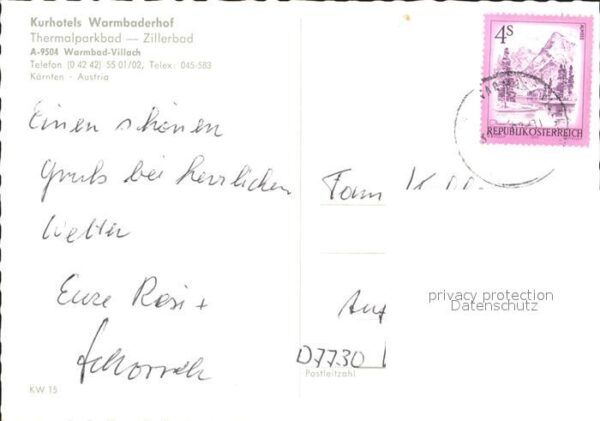 Kurhotels Warmbaderhof
Thermalparkbad — Zillerbad
A-9504 Warmbad-Villach
Telefon (0 42 42) 55 01/02, Telex: 045-583
Kärnten - Austria
Einen schönen
Gruß bei herrlichen
Wetter
Eure Rosi +
KW 15
4S
REPUBLIK ÖSTERREICH
Fam
privacy protection
Datenschutz
D7730
Postleitzahl